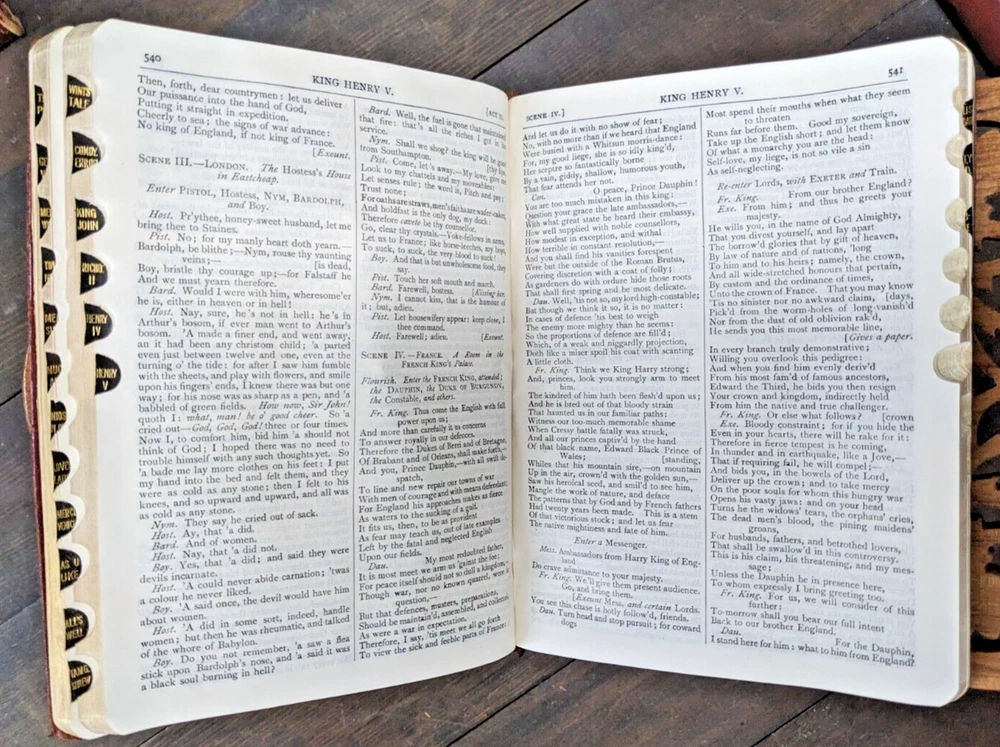 WINT'S TALE
COMDY. ERROR
KING JOHN
RICHD. II
HENRY IV
HENRY V
AS U LIKE
ALL'S WELL
TAMG. SHREW
540
KING HENRY V.
[ACT II.
Then, forth, dear countrymen: let us deliver
Our puissance into the hand of God,
Putting it straight in expedition.
Cheerly to sea; the signs of war advance:
No king of England, if not king of France.
[Exeunt.
SCENE III.—LONDON. The Hostess's House
in Eastcheap.
Enter PISTOL, Hostess, NYM, BARDOLPH,
and Boy.
Host. Pr'ythee, honey-sweet husband, let me
bring thee to Staines.
Pist. No; for my manly heart doth yearn.—
Bardolph, be blithe;—Nym, rouse thy vaunting
veins;— [is dead,
Boy, bristle thy courage up;—for Falstaff he
And we must yearn therefore.
Bard. Would I were with him, wheresome'er
he is, either in heaven or in hell!
Host. Nay, sure, he's not in hell: he's in
Arthur's bosom, if ever man went to Arthur's
bosom. 'A made a finer end, and went away,
an it had been any christom child; 'a parted
even just between twelve and one, even at the
turning o' the tide: for after I saw him fumble
with the sheets, and play with flowers, and smile
upon his fingers' ends, I knew there was but one
way; for his nose was as sharp as a pen, and 'a
babbled of green fields. How now, Sir John!
quoth I: what, man! be o' good cheer. So 'a
cried out—God, God, God! three or four times.
Now I, to comfort him, bid him 'a should not
think of God; I hoped there was no need to
trouble himself with any such thoughts yet. So
'a bade me lay more clothes on his feet: I put
my hand into the bed and felt them, and they
were as cold as any stone; then I felt to his
knees, and so upward and upward, and all was
as cold as any stone.
Nym. They say he cried out of sack.
Host. Ay, that 'a did.
Bard. And of women.
Host. Nay, that 'a did not.
Boy. Yes, that 'a did; and said they were
devils incarnate.
Host. 'A could never abide carnation; 'twas
a colour he never liked.
Boy. 'A said once, the devil would have him
about women.
Host. 'A did in some sort, indeed, handle
women; but then he was rheumatic, and talked
of the whore of Babylon.
Boy. Do you not remember, 'a saw a flea
stick upon Bardolph's nose, and 'a said it was
a black soul burning in hell?
Bard. Well, the fuel is gone that maintained
that fire: that's all the riches I got in his
service.
Nym. Shall we shog? the king will be gone
from Southampton.
Pist. Come, let's away.—My love, give me thy lips.
Look to my chattels and my moveables:
Let senses rule; the word is, Pitch and pay;
Trust none;
For oaths are straws, men's faiths are wafer-cakes,
And holdfast is the only dog, my duck:
Therefore caveto be thy counsellor.
Go, clear thy crystals.—Yoke-fellows in arms,
Let us to France; like horse-leeches, my boys,
To suck, to suck, the very blood to suck!
Boy. And that is but unwholesome food, they
say.
Pist. Touch her soft mouth and march.
Bard. Farewell, hostess. [Kissing her.
Nym. I cannot kiss, that is the humour of
it; but, adieu.
Pist. Let housewifery appear: keep close, I
thee command.
Host. Farewell; adieu. [Exeunt.
SCENE IV.—FRANCE. A Room in the
FRENCH KING'S Palace.
Flourish. Enter the FRENCH KING, attended;
the DAUPHIN, the DUKE OF BURGUNDY,
the Constable, and others.
Fr. King. Thus come the English with full
power upon us;
And more than carefully it us concerns
To answer royally in our defences.
Therefore the Dukes of Berri and of Bretagne,
Of Brabant and of Orleans, shall make forth,—
And you, Prince Dauphin,—with all swift de-
spatch,
To line and new repair our towns of war
With men of courage and with means defendant;
For England his approaches makes as fierce
As waters to the sucking of a gulf.
It fits us, then, to be as provident
As fear may teach us, out of late examples
Left by the fatal and neglected English
Upon our fields.
Dau. My most redoubted father,
It is most meet we arm us 'gainst the foe;
For peace itself should not so dull a kingdom,—
Though war, nor no known quarrel, were in
question,—
But that defences, musters, preparations,
Should be maintain'd, assembled, and collected,
As were a war in expectation.
Therefore, I say, 'tis meet we all go forth
To view the sick and feeble parts of France:
SCENE IV.]
KING HENRY V.
541
And let us do it with no show of fear;
No, with no more than if we heard that England
Were busied with a Whitsun morris-dance:
For, my good liege, she is so idly king'd,
Her sceptre so fantastically borne
By a vain, giddy, shallow, humorous youth,
That fear attends her not.
Con. O peace, Prince Dauphin!
You are too much mistaken in this king:
Question your grace the late ambassadors,—
With what great state he heard their embassy,
How well supplied with noble counsellors,
How modest in exception, and withal
How terrible in constant resolution,—
And you shall find his vanities forespent
Were but the outside of the Roman Brutus,
Covering discretion with a coat of folly;
As gardeners do with ordure hide those roots
That shall first spring and be most delicate.
Dau. Well, 'tis not so, my lord high-constable;
But though we think it so, it is no matter:
In cases of defence 'tis best to weigh
The enemy more mighty than he seems:
So the proportions of defence are fill'd;
Which, of a weak and niggardly projection,
Doth like a miser spoil his coat with scanting
A little cloth.
Fr. King. Think we King Harry strong;
And, princes, look you strongly arm to meet
him.
The kindred of him hath been flesh'd upon us;
And he is bred out of that bloody strain
That haunted us in our familiar paths:
Witness our too-much memorable shame
When Cressy battle fatally was struck,
And all our princes captiv'd by the hand
Of that black name, Edward Black Prince of
Wales; [standing,
Whiles that his mountain sire,—on mountain
Up in the air, crown'd with the golden sun,—
Saw his heroical seed, and smil'd to see him,
Mangle the work of nature, and deface
The patterns that by God and by French fathers
Had twenty years been made. This is a stem
Of that victorious stock; and let us fear
The native mightiness and fate of him.
Enter a Messenger.
Mess. Ambassadors from Harry King of Eng-
land
Do crave admittance to your majesty.
Fr. King. We'll give them present audience.
Go, and bring them.
[Exeunt Mess. and certain Lords.
You see this chase is hotly follow'd, friends.
Dau. Turn head and stop pursuit; for coward
dogs
Most spend their mouths when what they seem
to threaten
Runs far before them. Good my sovereign,
Take up the English short; and let them know
Of what a monarchy you are the head:
Self-love, my liege, is not so vile a sin
As self-neglecting.
Re-enter Lords, with EXETER and Train.
Fr. King. From our brother England?
Exe. From him; and thus he greets your
majesty.
He wills you, in the name of God Almighty,
That you divest yourself, and lay apart
The borrow'd glories that by gift of heaven,
By law of nature and of nations, 'long
To him and to his heirs; namely, the crown,
And all wide-stretched honours that pertain,
By custom and the ordinance of times,
Unto the crown of France. That you may know
'Tis no sinister nor no awkward claim, [days,
Pick'd from the worm-holes of long-vanish'd
Nor from the dust of old oblivion rak'd,
He sends you this most memorable line,
[Gives a paper.
In every branch truly demonstrative;
Willing you overlook this pedigree:
And when you find him evenly deriv'd
From his most fam'd of famous ancestors,
Edward the Third, he bids you then resign
Your crown and kingdom, indirectly held
From him the native and true challenger.
Fr. King. Or else what follows? [crown
Exe. Bloody constraint; for if you hide the
Even in your hearts, there will he rake for it:
Therefore in fierce tempest is he coming,
In thunder and in earthquake, like a Jove,—
That if requiring fail, he will compel;—
And bids you, in the bowels of the Lord,
Deliver up the crown; and to take mercy
On the poor souls for whom this hungry war
Opens his vasty jaws: and on your head
Turns he the widows' tears, the orphans' cries,
The dead men's blood, the pining maidens'
groans,
For husbands, fathers, and betrothed lovers,
That shall be swallow'd in this controversy.
This is his claim, his threatening, and my mes-
sage;
Unless the Dauphin be in presence here,
To whom expressly I bring greeting too.
Fr. King. For us, we will consider of this
further:
To-morrow shall you bear our full intent
Back to our brother England.
Dau. For the Dauphin,
I stand here for him: what to him from England?